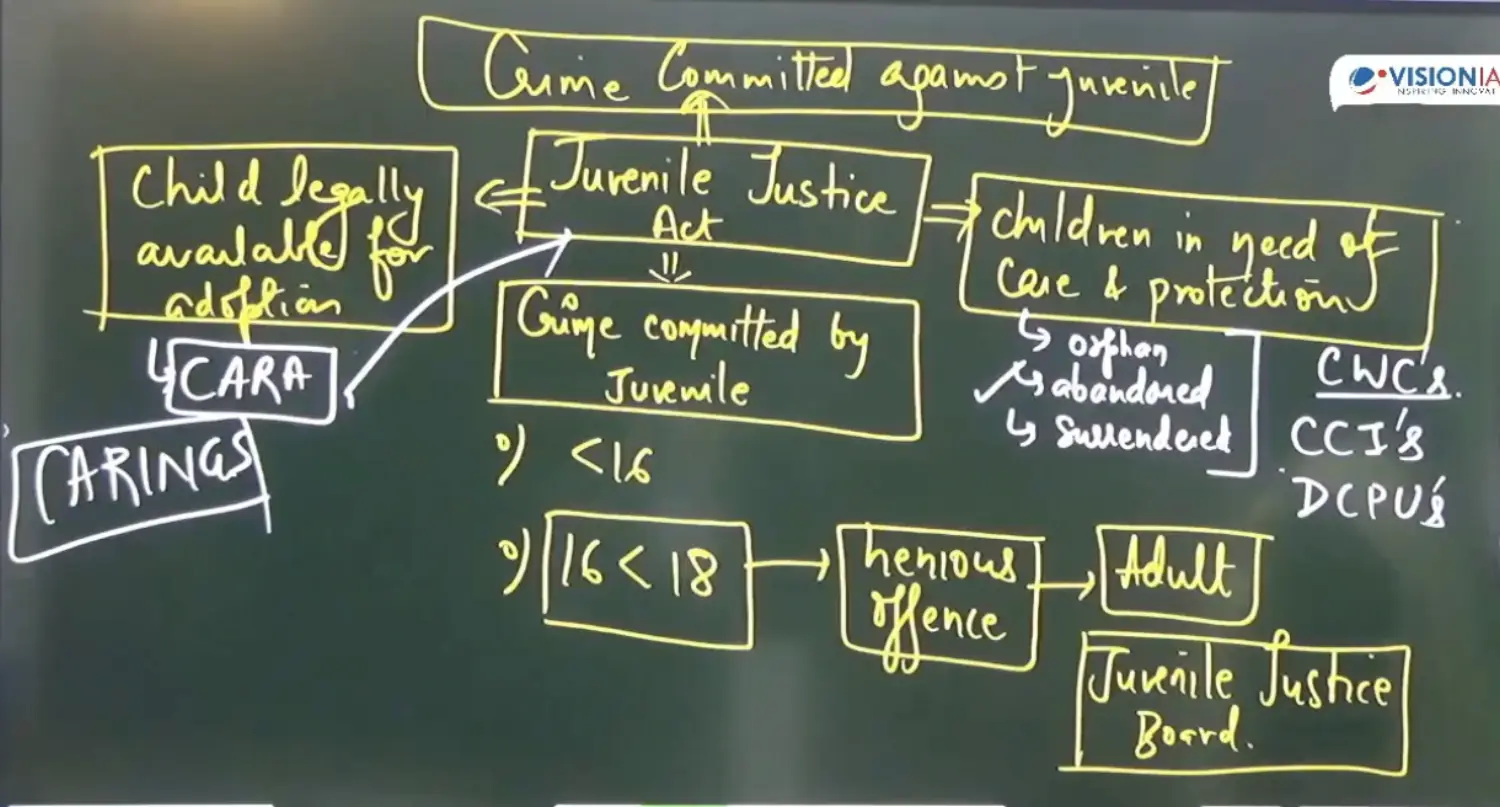 Crime Committed against juvenile
VISIONIA
INSPIRING INNOVAT
Juvenile Justice
Act
Child legally
available for
adoption
CARA
CARINGS
children in need of
care & protection
orphan
abandoned
surrendered
CWC's.
CCI's
DCPU's
Crime committed by
Juvenile
<16
16 < 18
henious
offence
Adult
Juvenile Justice
Board.